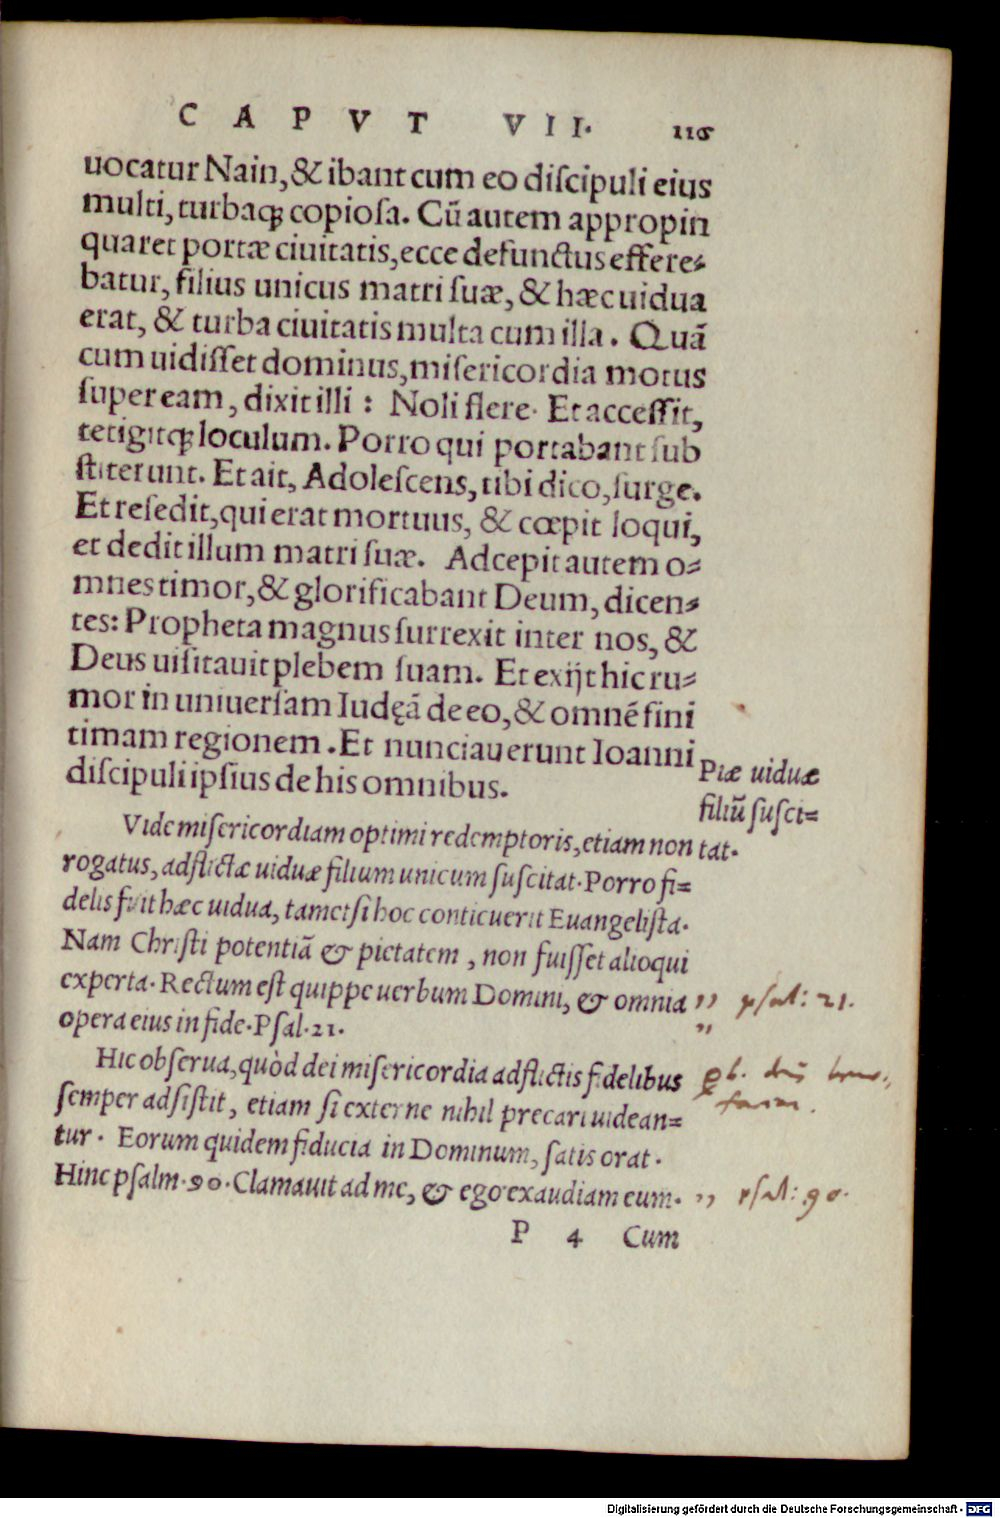 CAPVT VII. 116
uocatur Nain, & ibant cum eo diſcipuli eius
multi, turbaqꝫ copioſa. Cũ autem appropin
quaret portæ ciuitatis, ecce defunctus effere⸗
batur, filius unicus matri ſuæ, & hæc uidua
erat, & turba ciuitatis multa cum illa. Quã
cum uidiſſet dominus, miſericordia motus
ſuper eam, dixit illi : Noli flere. Et acceſſit,
tetigitqꝫ loculum. Porro qui portabant ſub
ſtiterunt. Et ait, Adoleſcens, tibi dico, ſurge.
Et reſedit, qui erat mortuus, & cœpit loqui,
et dedit illum matri ſuæ. Adcepit autem o⸗
mnes timor, & glorificabant Deum, dicen⸗
tes: Propheta magnus ſurrexit inter nos, &
Deus uiſitauit plebem ſuam. Et exijt hic ru⸗
mor in uniuerſam Iudęã de eo, & omnẽ fini
timam regionem. Et nunciauerunt Ioanni
diſcipuli ipſius de his omnibus.
Piæ uiduæ
filiũ ſuſci⸗
tat.
Vide miſericordiam optimi redemptoris, etiam non
rogatus, adflictæ uiduæ filium unicum ſuſcitat. Porro fi⸗
delis fuit hæc uidua, tametſi hoc conticuerit Euangeliſta.
Nam Chriſti potentiã & pietatem, non fuiſſet alioqui
experta. Rectum eſt quippe uerbum Domini, & omnia
opera eius in fide. Pſal. 21.
,, pſal: 21.
,,
Hic obſerua, quòd dei miſericordia adflictis fidelibus
ſemper adſiſtit, etiam ſi externe nihil precari uidean⸗
tur. Eorum quidem fiducia in Dominum, ſatis orat.
Hinc pſalm. 90. Clamauit ad me, & ego exaudiam eum.
,, pſal: 90.
P 4 Cum
Digitalisierung gefördert durch die Deutsche Forschungsgemeinschaft - DFG